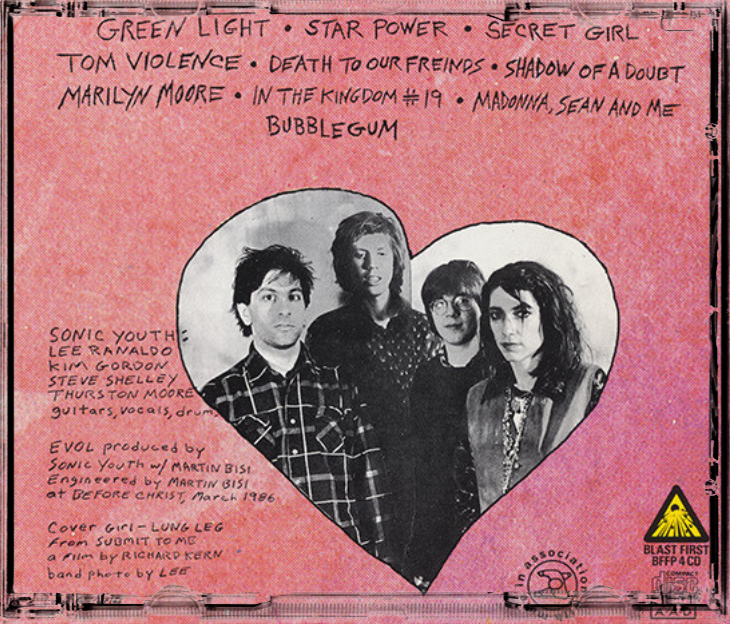 GREEN LIGHT • STAR POWER • SECRET GIRL
TOM VIOLENCE • DEATH TO OUR FREINDS • SHADOW OF A DOUBT
MARILYN MOORE • IN THE KINGDOM #19 • MADONNA, SEAN AND ME
BUBBLEGUM
SONIC YOUTH:
LEE RANALDO
KIM GORDON
STEVE SHELLEY
THURSTON MOORE
guitars, vocals, drum
EVOL produced by
SONIC YOUTH w/ MARTIN BISI
Engineered by MARTIN BISI
at BEFORE CHRIST, March 1986
Cover Girl - LUNG LEG
From SUBMIT TO ME
a Film by RICHARD KERN
band photo by LEE
in association
BLAST FIRST
BFFP 4 CD
COMPACT
disc
AAD